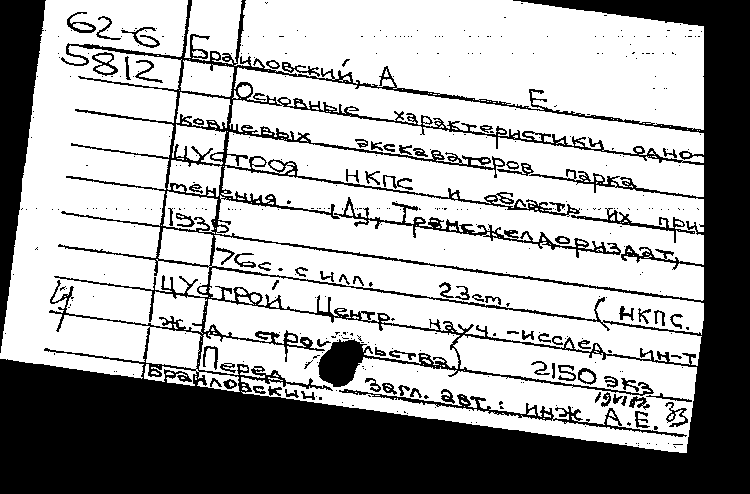 62-6
5812
Браиловский, А Е.
Основные характеристики одно-
ковшевых экскаваторов парка
ЦУСТРОЯ НКПС и область их при-
менения. [М], Трансжелдориздат,
1935.
76с. с илл. 23см. (НКПС.
ЦУСТРОЙ. Центр. науч.-исслед. ин-т
ж.-д. строительства). 2150 экз.
Перед загл. авт.: инж. А.Е.
Браиловский.
33